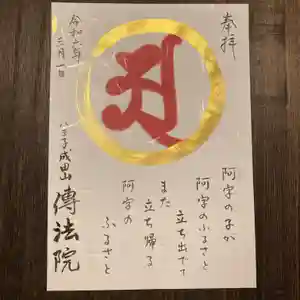 奉拝
阿字の子が
阿字のふるさと
立ち出でて
また
立ち帰る
阿字の
ふるさと
八王子成田山
傳法院
令和六年
三月一日